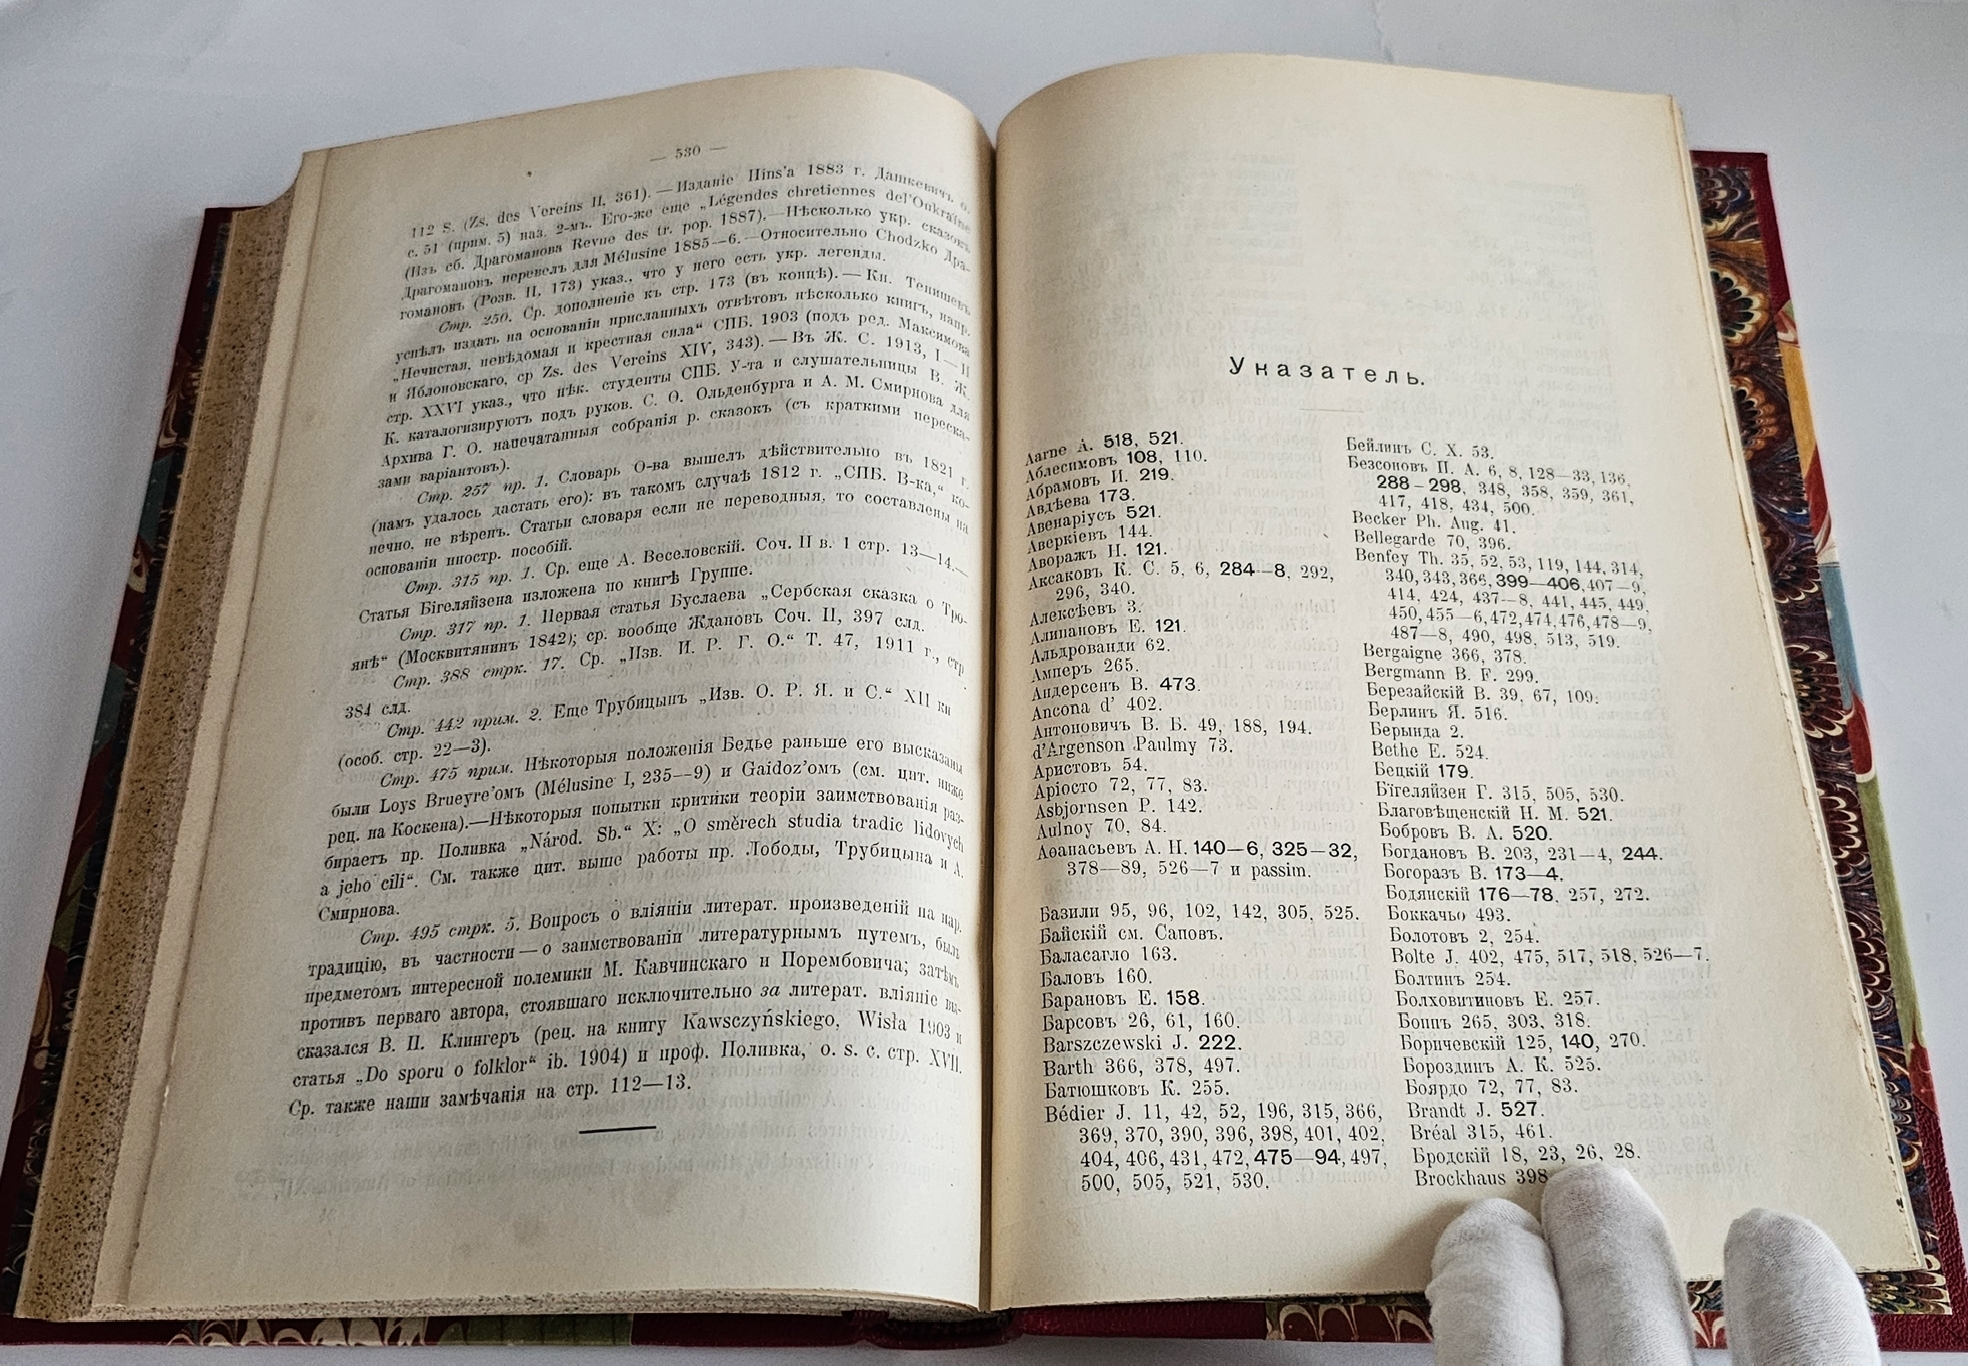 — 530 —
112 S. (Zs. des Vereins II, 361). — Изданіе Hins'a 1883 г. Дашкевичъ о.
с. 51 (прим. 5) наз. 2-мъ. Его-же еще „Légendes chretiennes del'Oukraïne
(Изъ сб. Драгоманова Revue des tr. pop. 1887).—Нѣсколько укр. сказокъ
Драгомановъ перевелъ для Mélusine 1885—6.—Относительно Chodzko Дра-
гомановъ (Розв. II, 173) указ., что у него есть укр. легенды.
Стр. 250. Ср. дополненіе къ стр. 173 (въ концѣ).— Кн. Тенишевъ
успѣлъ издать на основаніи присланныхъ отвѣтовъ нѣсколько книгъ, напр.
„Нечистая, невѣдомая и крестная сила“ СПБ. 1903 (подъ ред. Максимова
и Яблоновскаго, ср Zs. des Vereins XIV, 343).— Въ Ж. С. 1913, I—II
стр. XXVI указ., что нѣк. студенты СПБ. У-та и слушательницы В. Ж.
К. каталогизируютъ подъ руков. С. Ѳ. Ольденбурга и А. М. Смирнова для
Архива Г. О. напечатанныя собранія р. сказокъ (съ краткими переска-
зами варіантовъ).
Стр. 257 пр. 1. Словарь О-ва вышелъ дѣйствительно въ 1821 г.
(намъ удалось достать его): въ такомъ случаѣ 1812 г. „СПБ. В-ка,“ ко-
нечно, не вѣренъ. Статьи словаря если не переводныя, то составлены на
основаніи иностр. пособій.
Стр. 315 пр. 1. Ср. еще А. Веселовскій. Соч. II в. 1 стр. 13—14.—
Статья Бігеляйзена изложена по книгѣ Группе.
Стр. 317 пр. 1. Первая статья Буслаева „Сербская сказка о Тро-
янѣ“ (Москвитянинъ 1842); ср. вообще Ждановъ Соч. II, 397 слд.
Стр. 388 стрк. 17. Ср. „Изв. И. Р. Г. О.“ Т. 47, 1911 г., стр
384 слд.
Стр. 442 прим. 2. Еще Трубицынъ „Изв. О. Р. Я. и С.“ XII кн
(особ. стр. 22—3).
Стр. 475 прим. Нѣкоторыя положенія Бедье раньше его высказаны
были Loys Brueyre'омъ (Mélusine I, 235—9) и Gaidoz'омъ (см. цит. ниже
рец. на Коскена).—Нѣкоторыя попытки критики теоріи заимствованія раз-
бираетъ пр. Поливка „Národ. Sb.“ X: „O směrech studia tradic lidových
a jeho cíli“. См. также цит. выше работы пр. Лободы, Трубицына и А.
Смирнова.
Стр. 495 стрк. 5. Вопросъ о вліяніи литерат. произведеній на нар.
традицію, въ частности — о заимствованіи литературнымъ путемъ, былъ
предметомъ интересной полемики М. Кавчинскаго и Порембовича; затѣмъ
противъ перваго автора, стоявшаго исключительно за литерат. вліяніе вы-
сказался В. П. Клингеръ (рец. на книгу Kawsczyńskiego, Wisła 1903 и
статья „Do sporu o folklor“ ib. 1904) и проф. Поливка, o. s. c. стр. XVII.
Ср. также наши замѣчанія на стр. 112—13.
Указатель.
Aarne A. 518, 521.
Аблесимовъ 108, 110.
Абрамовъ И. 219.
Авдѣева 173.
Авенаріусъ 521.
Аверкіевъ 144.
Аворажъ Н. 121.
Аксаковъ К. С. 5, 6, 284—8, 292,
296, 340.
Алексѣевъ 3.
Алипановъ Е. 121.
Альдрованди 62.
Амперъ 265.
Андерсенъ В. 473.
Ancona d' 402.
Антоновичъ В. Б. 49, 188, 194.
d'Argenson Paulmy 73.
Аристовъ 54.
Аріосто 72, 77, 83.
Asbjornsen P. 142.
Aulnoy 70, 84.
Аѳанасьевъ А. Н. 140—6, 325—32,
378—89, 526—7 и passim.
Базили 95, 96, 102, 142, 305, 525.
Байскій см. Саповъ.
Баласагло 163.
Баловъ 160.
Барановъ Е. 158.
Барсовъ 26, 61, 160.
Barszczewski J. 222.
Barth 366, 378, 497.
Батюшковъ К. 255.
Bédier J. 11, 42, 52, 196, 315, 366,
369, 370, 390, 396, 398, 401, 402,
404, 406, 431, 472, 475—94, 497,
500, 505, 521, 530.
Бейлинъ С. Х. 53.
Безсоновъ П. А. 6, 8, 128—33, 136,
288—298, 348, 358, 359, 361,
417, 418, 434, 500.
Becker Ph. Aug. 41.
Bellegarde 70, 396.
Benfey Th. 35, 52, 53, 119, 144, 314,
340, 343, 366, 399—406, 407—9,
414, 424, 437—8, 441, 445, 449,
450, 455—6, 472, 474, 476, 478—9,
487—8, 490, 498, 513, 519.
Bergaigne 366, 378.
Bergmann B. F. 299.
Березайскій В. 39, 67, 109.
Берлинъ Я. 516.
Берында 2.
Bethe E. 524.
Бецкій 179.
Бігеляйзен Г. 315, 505, 530.
Благовѣщенскій Н. М. 521.
Бобровъ В. А. 520.
Богдановъ В. 203, 231—4, 244.
Богоразъ В. 173—4.
Бодянскій 176—78, 257, 272.
Боккачьо 493.
Болотовъ 2, 254.
Bolte J. 402, 475, 517, 518, 526—7.
Болтинъ 254.
Болховитиновъ Е. 257.
Боппъ 265, 303, 318.
Боричевскій 125, 140, 270.
Бороздинъ А. К. 525.
Боярдо 72, 77, 83.
Brandt J. 527.
Bréal 315, 461.
Бродскій 18, 23, 26, 28.
Brockhaus 398